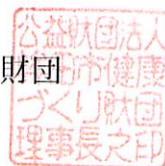 財団
公益財団法人
市健康
づくり財団
理事長之印